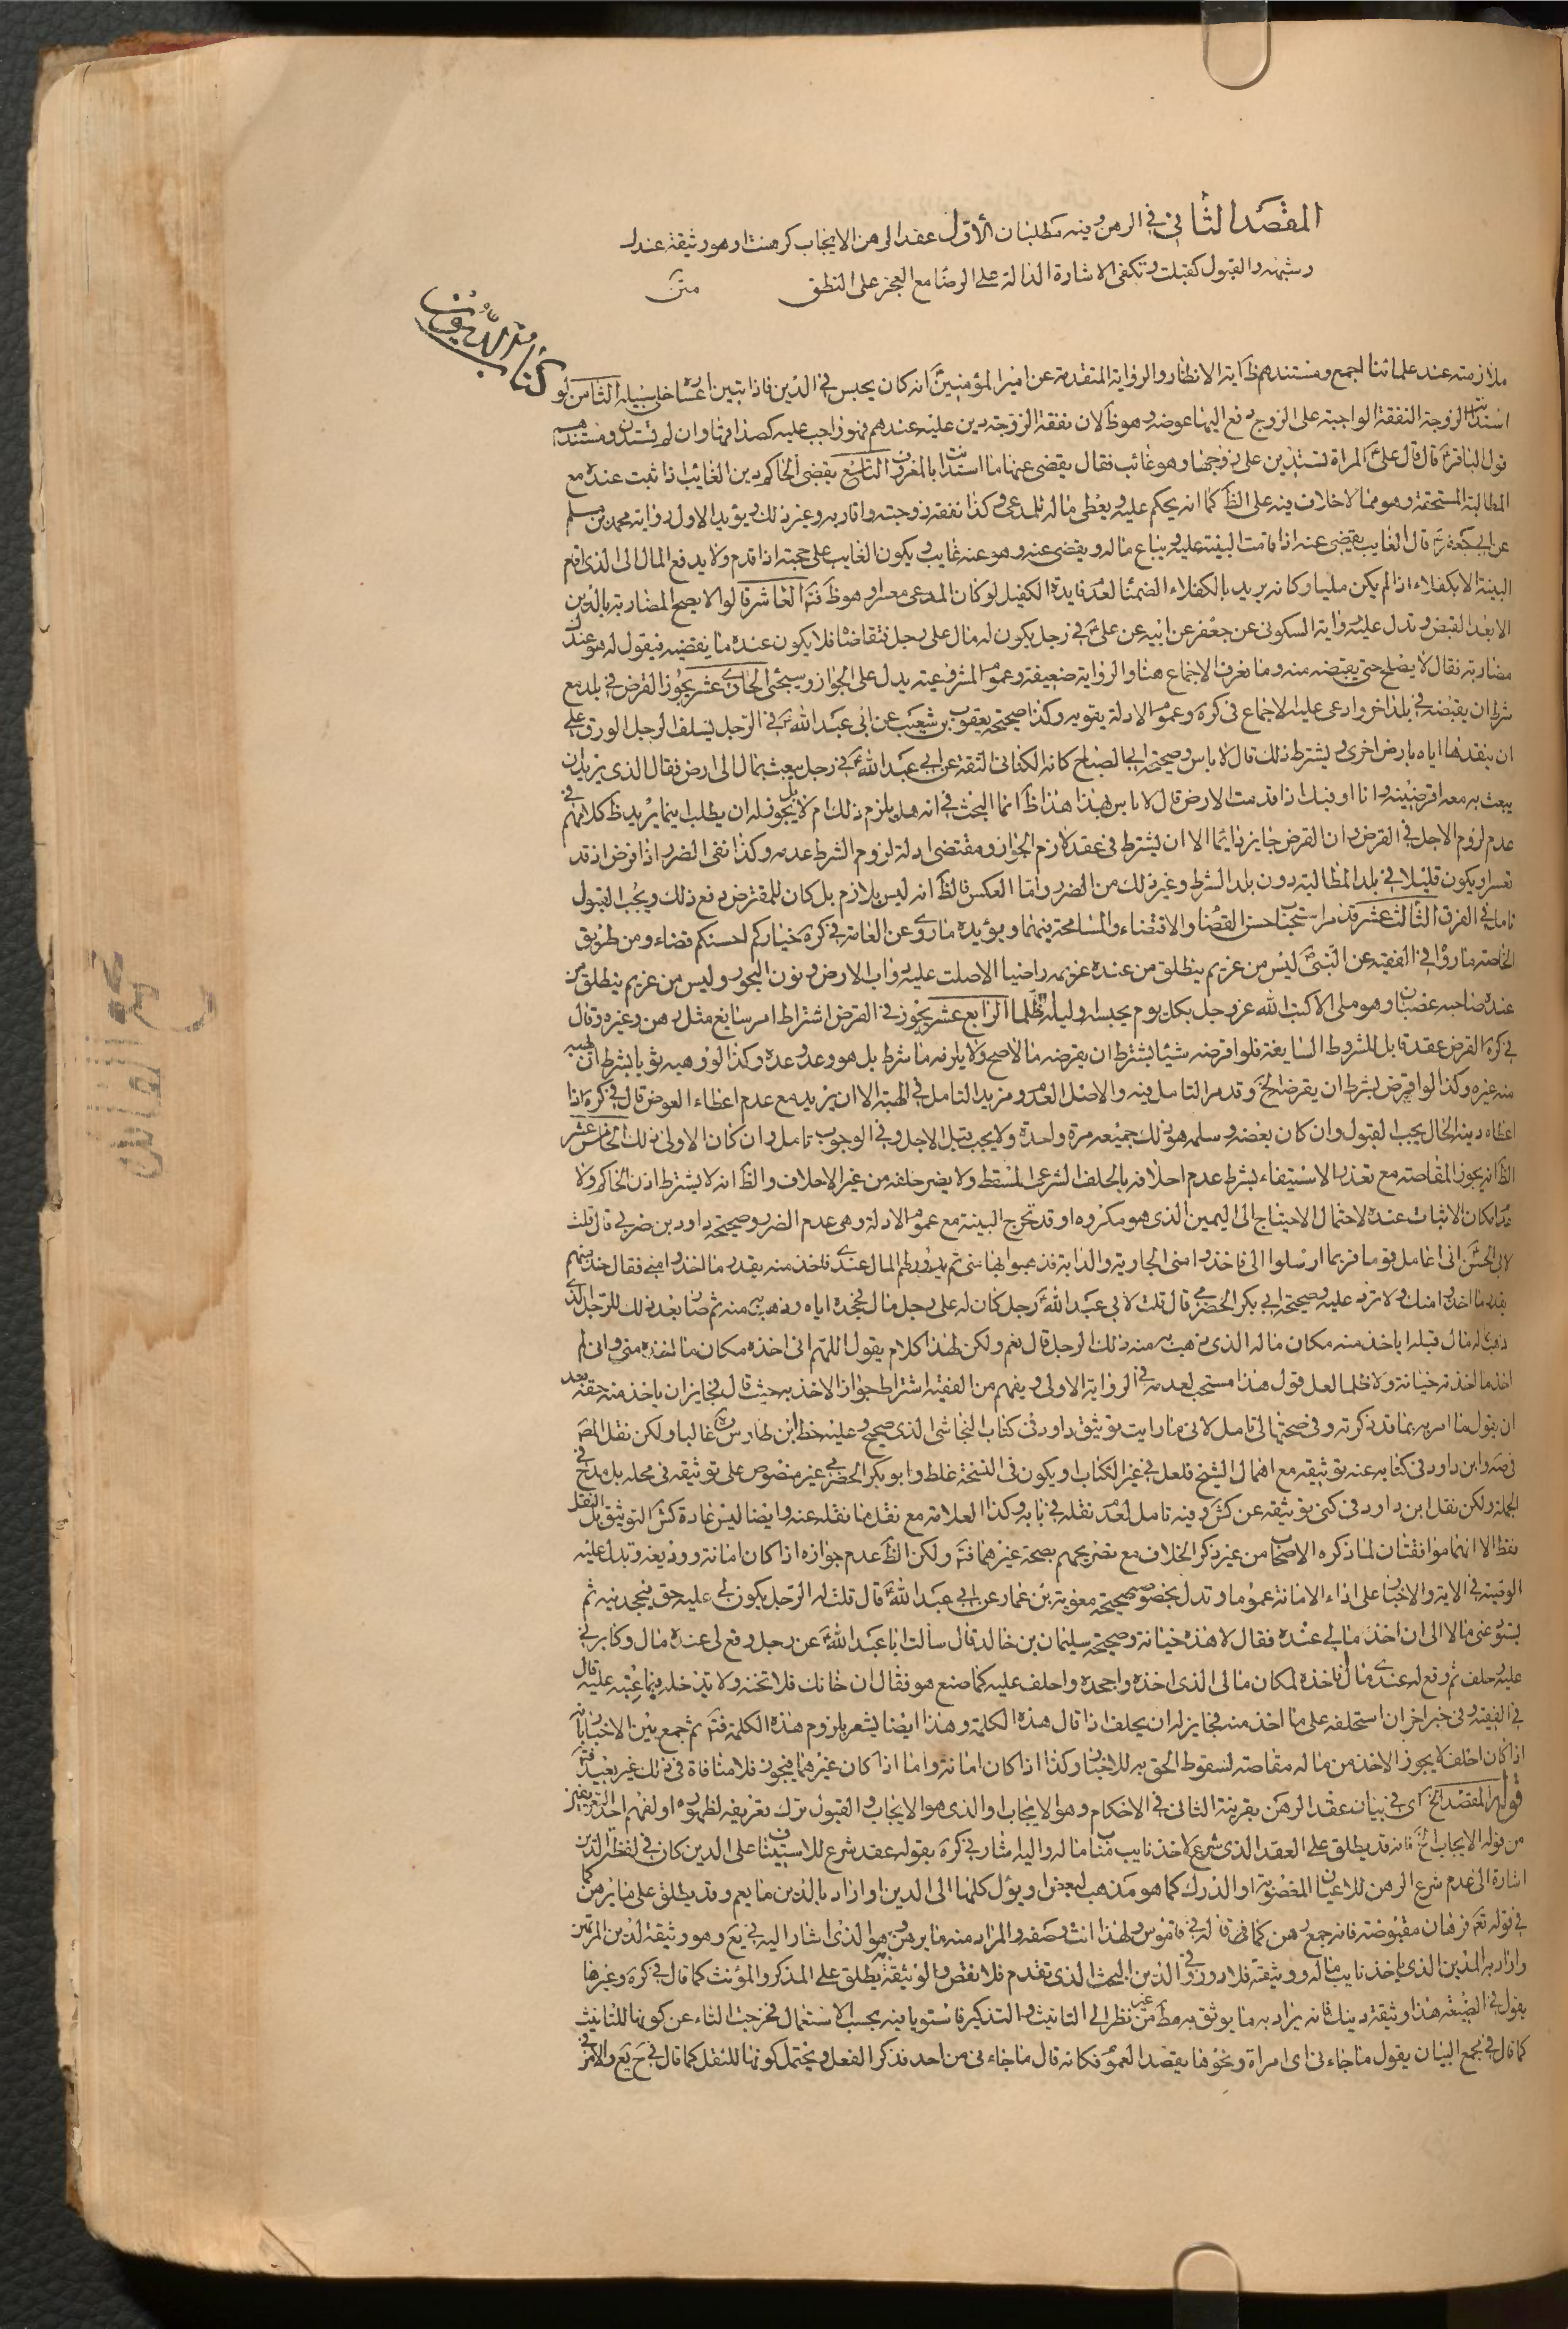 المقصد الثاني في الرهن وفيه مطلبان الأول عقد الرهن الايجاب كرهنت او هو وثيقة عندك
وشبهه والقبول كقبلت وتكفى الاشارة الدالة على الرضا مع العجز على النطق متن
كتاب الديون
ملازمته عند علمائنا اجمع ومستندهم ظ آية الانظار والرواية المتقدمة عن امير المؤمنين انه كان يحبس في الدين فاذا تبين اعساره خلى سبيله الثامن لو
استدانت الزوجة النفقة الواجبة على الزوج دفع اليها عوضه وهو ظ لان نفقة الزوجة دين عليه عندهم فهو واجب عليه كصداقها وان لم تستدن ومستندهم
قول الباقر قال قال على المراة تستدين على زوجها وهو غائب فقال يقضى عنها ما استدانت بالمعروف التاسع يقضى الحاكم دين الغائب اذا ثبت عنده مع
المطالبة المستحقة وهو مما لاخلاف فيه على الظ كما انه يحكم عليه ويعطى ماله للمدعى وكذا نفقة زوجته واقاربه وغير ذلك ويؤيد الاول رواية محمد بن مسلم
عن ابي جعفر قال الغايب يقضى عنه اذا قامت البينة عليه ويباع ماله ويقضى عنه وهو عنه غايب ويكون الغايب على حجته اذا قدم ولا يدفع المال الى الذى اقام
البينة الا بكفلاء اذا لم يكن مليا وكانه يريد بالكفلاء الضمناء لعدم فايدة الكفيل لو كان المدعى معسرا وهو ظ فتم العاشر قالوا لا يصح المضاربة بالدين
الا بعد القبض وتدل عليه رواية السكونى عن جعفر عن ابيه عن على في رجل يكون له مال على رجل فتقاضاه فلا يكون عنده ما يقضيه فيقول له هو عندك
مضاربة فقال لا يصلح حتى يقبضه منه وما نعرف الاجماع هنا والرواية ضعيفة وعموم المشروعية يدل على الجواز وسيجئ الحادى عشر يجوز القرض في بلد مع
شرط ان يقبضه في بلد اخر وادعى عليه الاجماع في كرة وعموم الادلة يقويه وكذا صحيحة يعقوب بن شعيب عن ابى عبد الله في الرجل يسلف الرجل الورق على
ان ينقدها اياه بارض اخرى ويشترط ذلك قال لا باس وصحيحة ابي الصباح كانه الكنانى الثقة عن ابي عبد الله في رجل يبعث بمال الى ارض فقال الذى يريد ان
يبعث به معه اقرضنيه وانا اوفيك اذا قدمت الارض قال لا باس بهذا هذا ظ انما البحث في انه هل يلزم ذلك ام لا بل يجوز له ان يطلب اينما يريد ظ كلامهم في
عدم لزوم الاجل في القرض وان القرض جايز دايما الا ان يشترط في عقد لازم الجواز ومقتضى ادلة لزوم الشرط عدمه وكذا نفى الضرر اذا فرض اذ قد
تعسر او يكون قليلا في بلد المطالبة دون بلد الشرط وغير ذلك من الضرر واما العكس فالظ انه ليس بلازم بل كان للمقترض دفع ذلك ويجب القبول
تامل في الفرق الثالث عشر قد مر استحباب حسن القضا والاقتضاء والمسامحة فيهما ويؤيده ما روى عن العامة في كرة خياركم احسنكم قضاء ومن طريق
الخاصة ما رواه في الفقيه عن النبي ليس من غريم ينطلق من عنده غريمه راضيا الا صلت عليه دواب الارض ونون البحور وليس من غريم ينطلق من
عنده صاحبه غضبان وهو ملى الا كتب الله عز وجل بكل يوم يحبسه وليلة ظلما الرابع عشر يجوز في القرض اشتراط امر سايغ مثل رهن وغيره وقال
في كرة القرض عقد قابل للشروط السايغة فلو اقرضه شيئا بشرط ان يقرضه مالا صح ولا يلزمه ما شرط بل هو وعد وعده وكذا لو وهبه ثوبا بشرط ان يهبه
منه غيره وكذا لو اقرض بشرط ان يقرضه الخ وقد مر التامل فيه والاصل العدم ومزيد التامل في الهبة الا ان يزيد مع عدم اعطاء العوض قال في كرة اذا
اعطاه دينه الحال يجب القبول وان كان بعضه وسلمه هو ذلك جميعه مرة واحدة ولا يجب قبل الاجل وفي الوجوب تامل وان كان الاولى ذلك الخامس عشر
الظ انه يجوز المقاصة مع تعذر الاستيفاء بشرط عدم احلافه بالحلف الشرعى المسقط ولا يضر حلفه من غير الاحلاف والظ انه لا يشترط اذن الحاكم ولا
عدم امكان الاثبات عنده لاحتمال الاحتياج الى اليمين الذى هو مكروه او قد تجرح البينة مع عموم الادلة وهى عدم الضرر وصحيحة داود بن ضربي قال قلت
لابى الحسن انى اعامل قوما فربما ارسلوا الى فاخذوا منى الجارية والدابة فذهبوا بها منى ثم يدور لهم المال عندى فاخذ منه بقدر ما اخذوا منى فقال خذ منهم
بقدر ما اخذوا منك ولا تزد عليه وصحيحة ابي بكر الحضرمي قال قلت لابى عبد الله رجل كان له على رجل مال فجحده اياه وذهب به منه ثم صار بعد ذلك للرجل الذى
ذهب بماله مال قبله ا ياخذ منه مكان ماله الذى ذهب به منه ذلك الرجل قال نعم ولكن لهذا كلام يقول اللهم انى اخذه مكان مالى الذى اخذه منى وانى لم
اخذ ما اخذته خيانة ولا ظلما لعل قول هذا مستحب لعدمه في الرواية الاولى ويفهم من الفقيه اشتراط جواز الاخذ به حيث قال فجايز ان ياخذ منه حقه بعد
ان يقول ما امر به بما قد ذكرته وفى صحتها لى تامل لانى ما رايت توثيق داود في كتاب النجاشى الذى صحيح وعليه خط ابن طاوس ره غالبا ولكن نقل المص
في صه وابن داود في كتابه عنه توثيقه مع اهمال الشيخ فلعل في غير الكتاب او يكون في النسخة غلط وابو بكر الحضرمي غير منصوص على توثيقه في محله بل مدح في
الجملة ولكن نقل ابن داود في كنى توثيقه عن كش وفيه تامل لعدم نقله في بابه وكذا العلامة مع نقل ما نقله عنه وايضا ليس عادة كش التوثيق بل النقل
فقط الا انهما موافقتان لما ذكره الاصحاب من غير ذكر الخلاف مع تصريحهم بصحة غيرهما فتم ولكن الظ عدم جوازه اذا كان امانة ووديعة وتدل عليه
الوصية في الاية والاخبار على اداء الامانة عموما وتدل بخصوصه صحيحة معوية بن عمار عن ابي عبد الله قال قلت له الرجل يكون لي عليه حق فيجحدنيه ثم
يستودعنى مالا الى ان اخذ مالي عنده فقال لا هذه خيانة وصحيحة سليمان بن خالد قال سالت ابا عبد الله عن رجل وقع لى عنده مال وكابرني
عليه وحلف ثم وقع له عندى مال فاخذه لمكان مالى الذى اخذه واجحده واحلف عليه كما صنع هو فقال ان خانك فلا تخنه ولا تدخل فيما عبته عليه قال
في الفقيه وفى خبر اخر ان استحلفه على ما اخذ منه فجايز له ان يحلف اذا قال هذه الكلمة وهذا ايضا يشعر بلزوم هذه الكلمة فتم ثم جمع بين الاخبار بانه
اذا كان احلفه لا يجوز الاخذ من ماله مقاصة لسقوط الحق به للاخبار وكذا اذا كان امانة واما اذا كان غيرهما فيجوز فلا منافاة في ذلك غير بعيد فتم
قوله المقصد الخ اى في بيان عقد الرهن بقرينة الثانى في الاحكام وهو الايجاب او الذى هو الايجاب والقبول ترك تعريفه لظهوره او لفهم احد التعريفين
من قوله الايجاب الخ فانه قد يطلق على العقد الذى شرع لاخذ نايب مناب ماله واليه اشار في كرة بقوله عقد شرع للاستيثاق على الدين كان في لفظ الدين
اشارة الى عدم شرع الرهن للاعيان المغصوبة او الدرك كما هو مذهب لبعض او يؤل كلها الى الدين او اراد بالدين ما يعم وقد يطلق على ما يرهن كما
في قوله تعم فرهان مقبوضة فانه جمع رهن كما في قاموس ولهذا انث وصفه والمراد منه ما يرهن وهو الذى اشار اليه في يع وهو وثيقة لدين المرتهن
واراد به الدين الذى ياخذ نايب ماله ووثيقته فلا دور وفي الدين البحث الذى تقدم فلا نقض والوثيقة يطلق على المذكر والمؤنث كما قال في كرة وغيرها
يقول في الصيغة هذا وثيقة دينك فانه يراد به ما يوثق به مط من غير نظر الى التانيث والتذكير فاستويا فيه بحسب الاستعمال فخرجت التاء عن كونها للتانيث
كما قال في مجمع البيان يقول ما جاءنى اى امراة ونحوها بقصد العموم فكانه قال ما جاءنى من احد فذكر الفعل ويحتمل كونها للنقل كما قال في ح يع والامر في